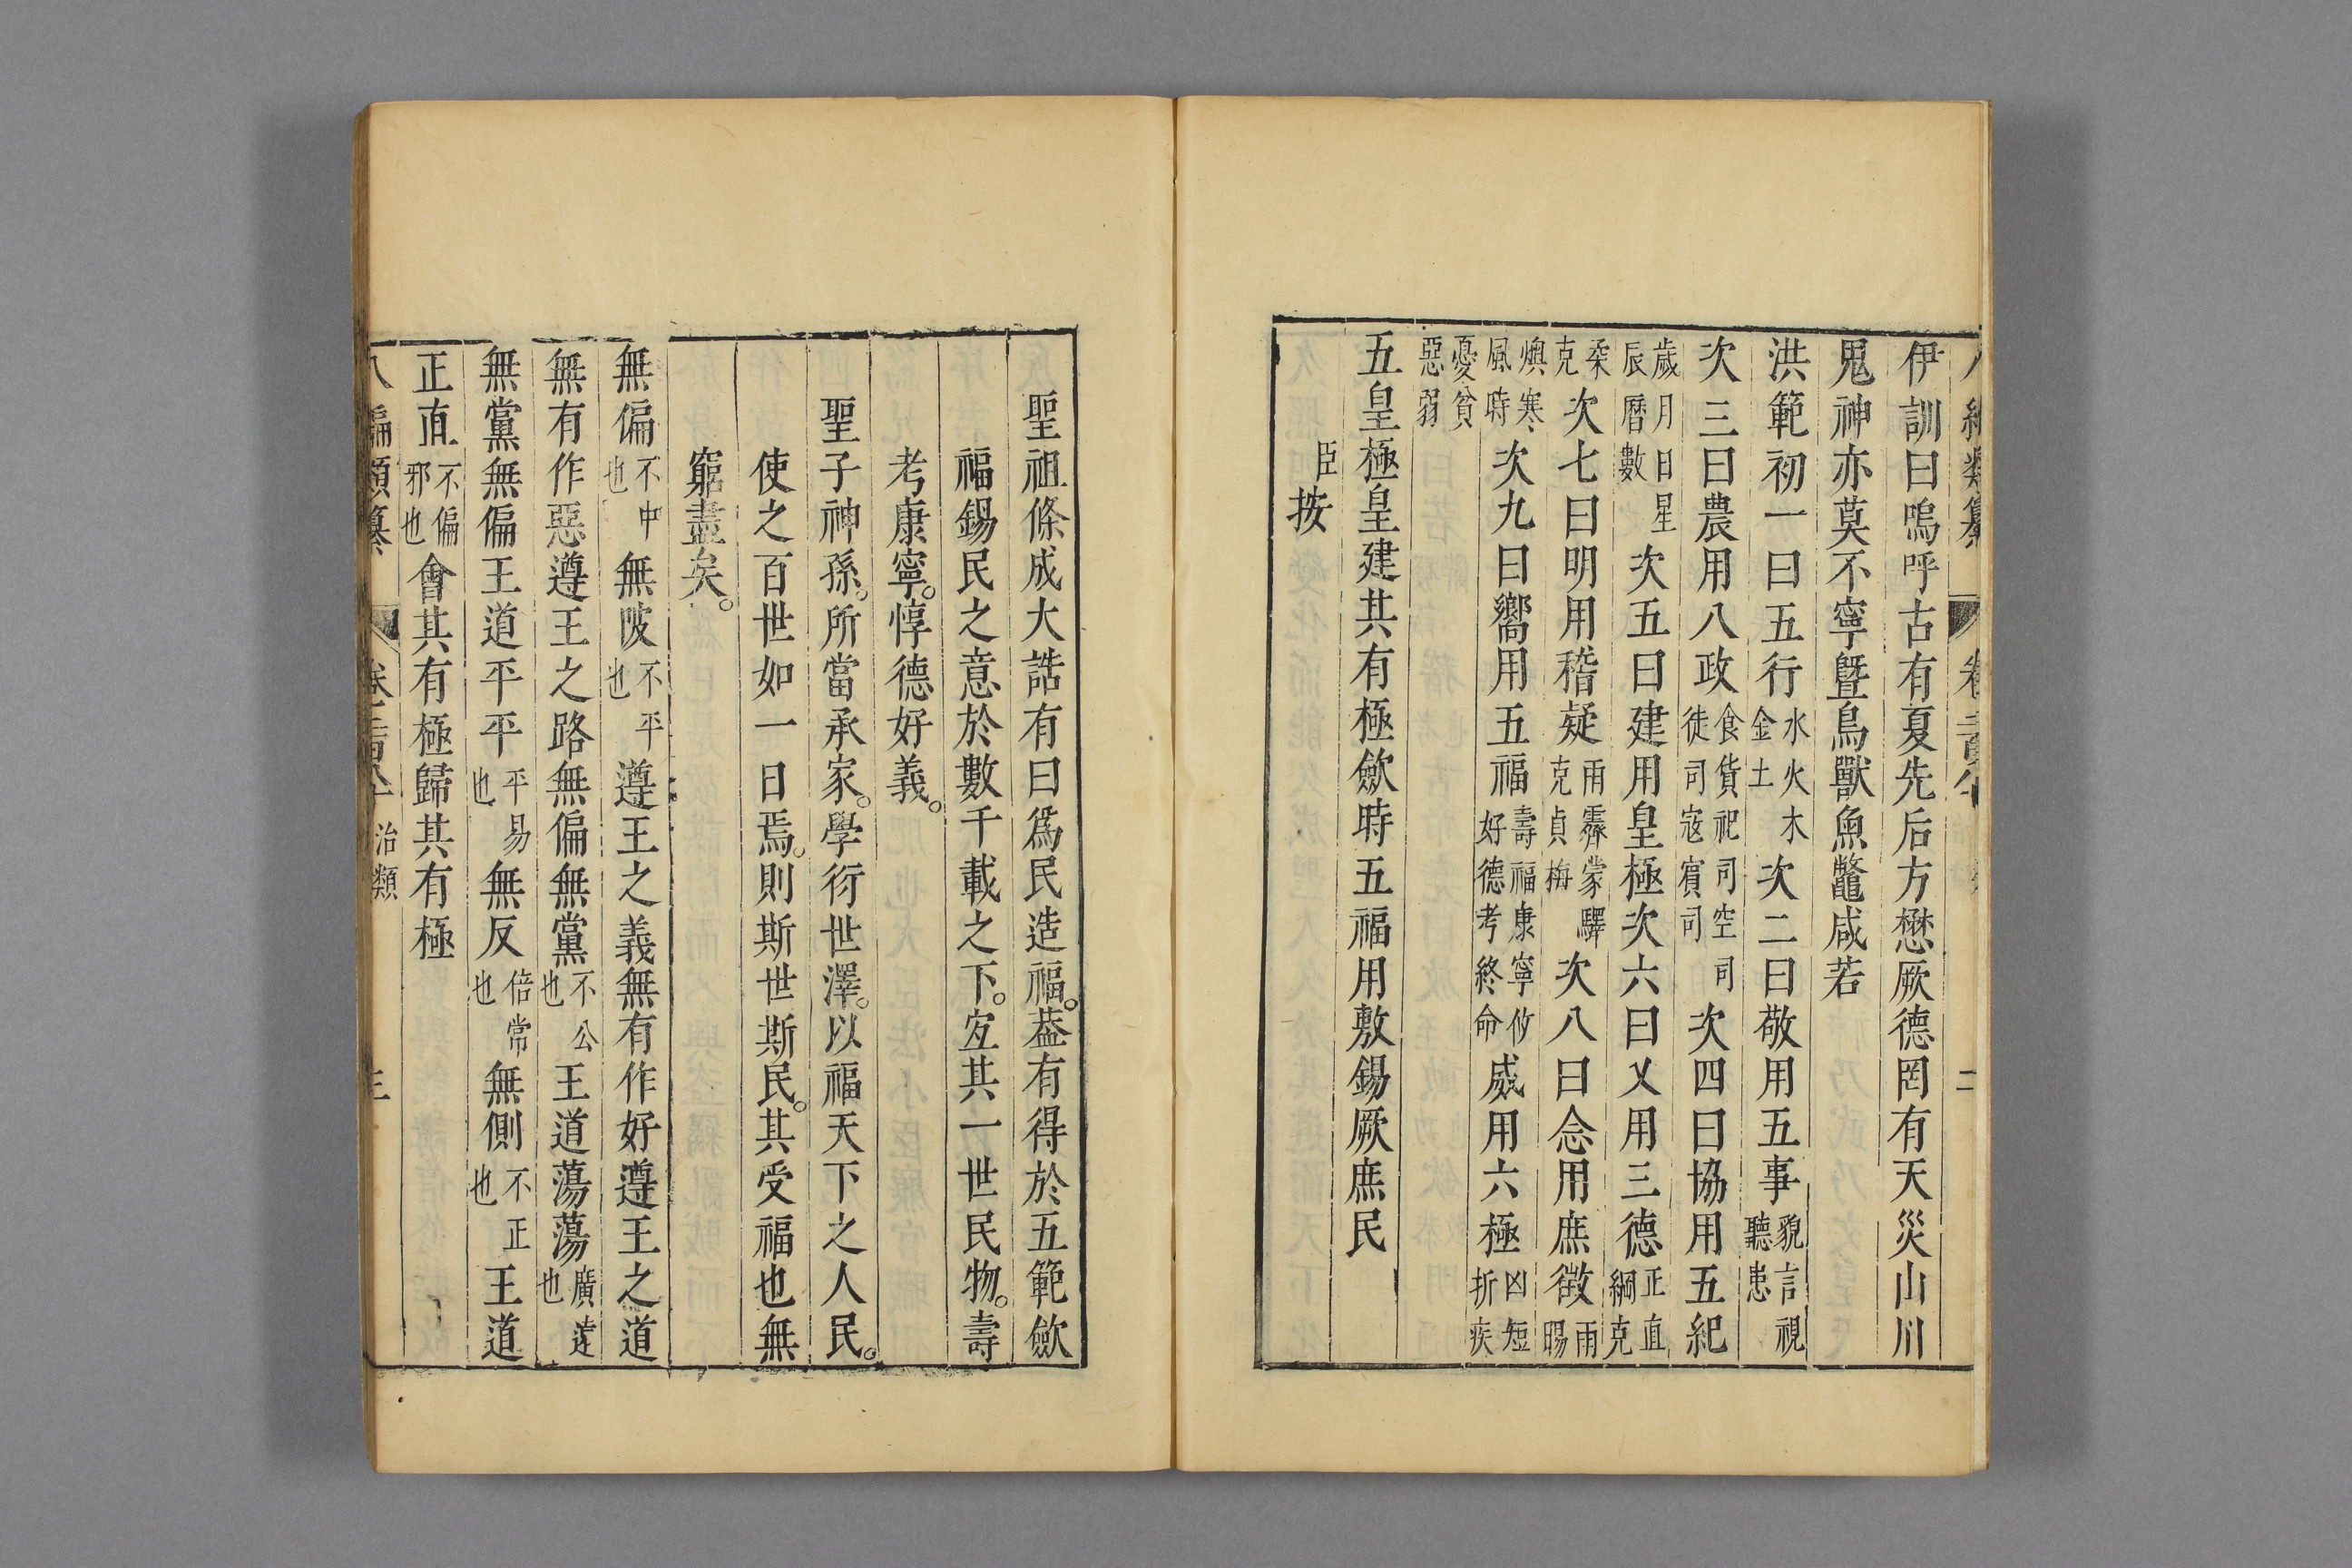 伊訓曰嗚呼古有夏先后方懋厥德罔有天災山川
鬼神亦莫不寧曁鳥獸魚鼈咸若
洪範初一曰五行水火木金土次二曰敬用五事貌言視聽思
次三曰農用八政食貨祀司空司徒司寇賔司次四曰協用五紀
歲月日星辰曆數次五曰建用皇極次六曰乂用三德正直綱克
柔克次七曰明用稽疑雨霽蒙驛克貞梅次八曰念用庶徵雨暘
燠寒風時次九曰嚮用五福壽福康寧攸好德考終命威用六極凶短折疾
憂貧惡弱
五皇極皇建其有極歛時五福用敷錫厥庶民
臣按
聖祖條成大誥有曰爲民造福。葢有得於五範歛
福錫民之意於數千載之下。㝎其一世民物。壽
考康寧。惇德好義。
聖子神孫。所當承家。學衍世澤。以福天下之人民。
使之百世如一日焉。則斯世斯民。其受福也無
窮盡矣。
無偏不中也無陂不平也遵王之義無有作好遵王之道
無有作惡遵王之路無偏無黨不公也王道蕩蕩廣遠也
無黨無偏王道平平平易也無反倍常也無側不正也王道
正直不偏邪也會其有極歸其有極
八編類纂 治類